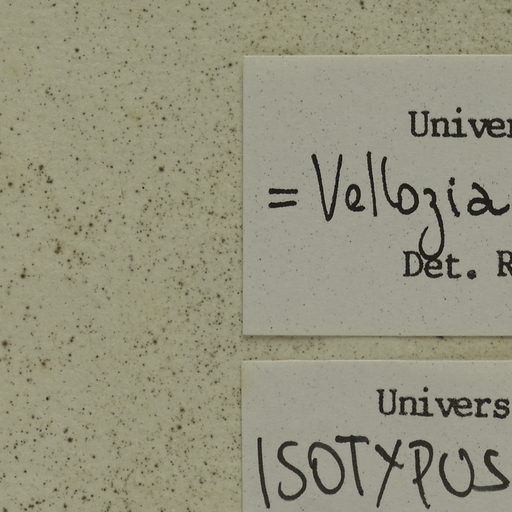 Univer
= Vellozia
Det. R
Univers
ISOTYPUS